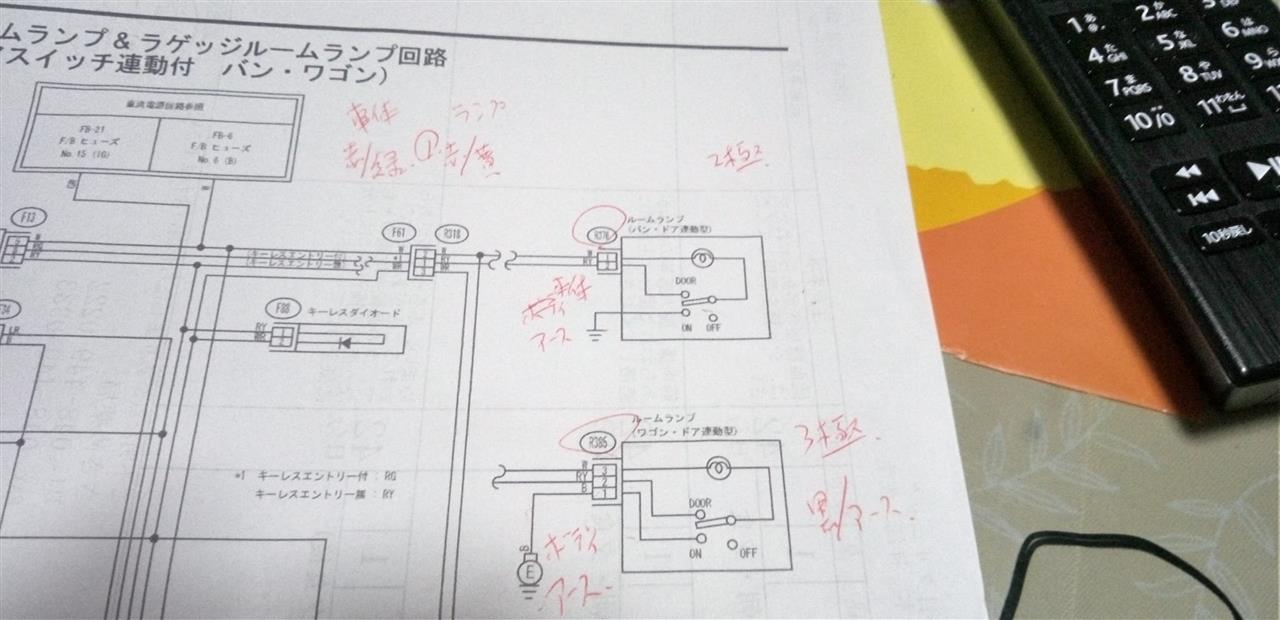 ムランプ＆ラゲッジルームランプ回路
スイッチ連動付　バン・ワゴン）
直流電源回路参照
FB-21
F/B ヒューズ
No.15 (IG)
FB-6
F/B ヒューズ
No.6 (B)
車体
ランプ
赤/緑.
①
赤/黄
2極
F13
F61
R318
R376
ルームランプ
(バン・ドア連動型)
W
RG
RY
(キーレスエントリー付)
(キーレスエントリー無)
W
*1
RR
1
2
3
W
RY
RR
W
RY
1
2
DOOR
ON
OFF
車体
ボディ
アース
F34
LR
B
F88
キーレスダイオード
RY
RR
*1 キーレスエントリー付 : RG
キーレスエントリー無 : RY
R385
ルームランプ
(ワゴン・ドア連動型)
3極
W
RY
B
3
2
1
DOOR
ON
OFF
黒/アース.
B
E
ボディ
アース
1 あ
2 か ABC
4 た GHI
5 な JKL
6 は MNO
7 ま PQRS
8 や TUV
9 ら
10 /0
11 わをん
10秒戻し